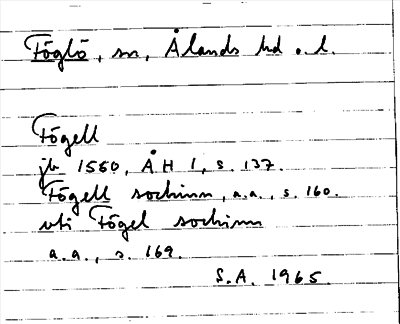 Föglö, sn, Ålands hd o. l.
Fögell
jb 1550, ÅH 1, s. 137.
Fögell sochnn, a.a., s. 160.
uti Fögel sochnn
a.a., s. 169.
S.A. 1965.